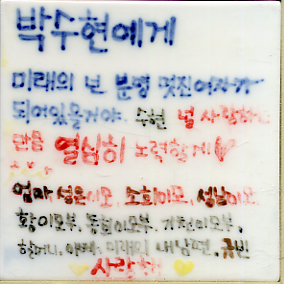 박수현에게
미래의 넌 분명 멋진여자가
되어있을거야. 수현 널 사랑하는
만큼 열심히 노력할게
엄마, 영은이모, 소희이모, 성남이모,
황이모부, 동희이모부, 기천이모부,
할머니, 아빠, 미래의 내남편, 규빈
사랑해